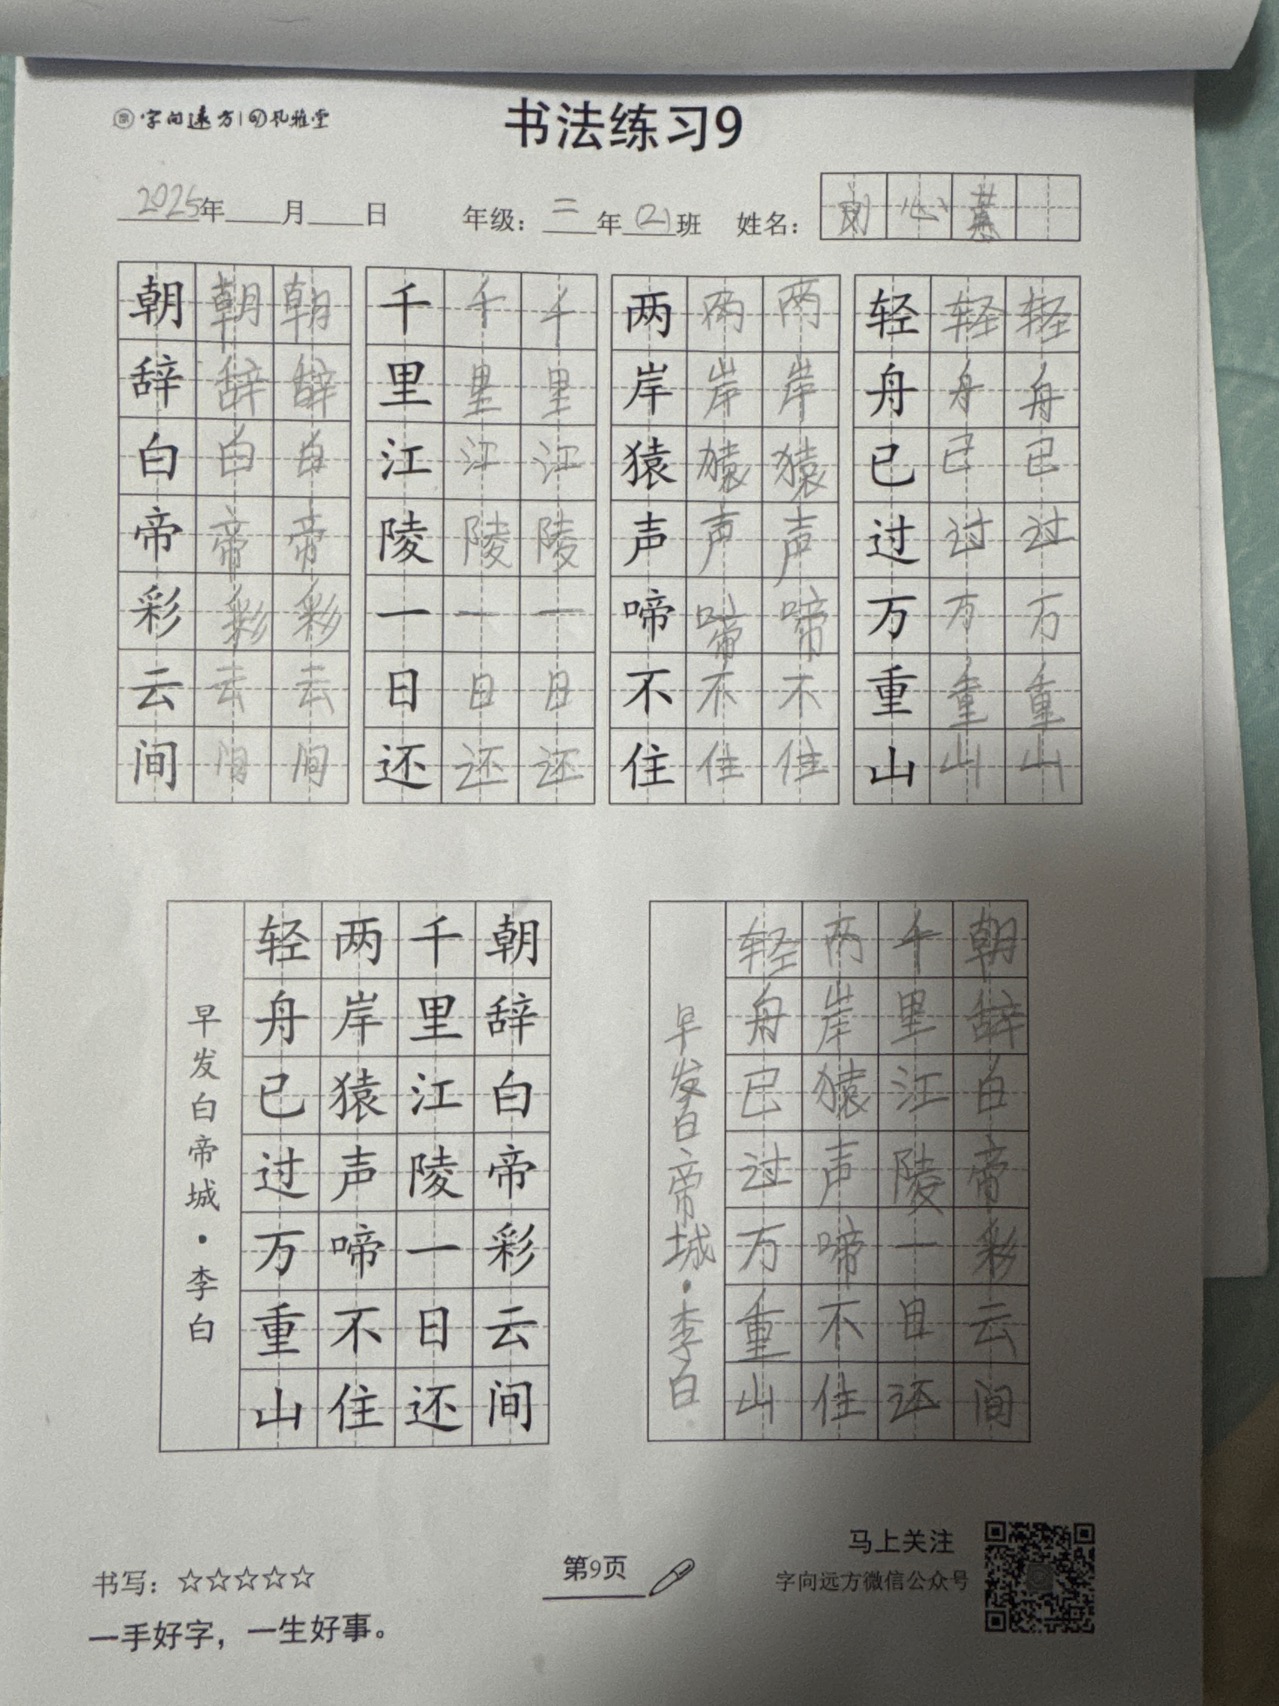 字向远方 风雅堂
书法练习9
2025年 月 日 年级：二年(2)班 姓名：刘心慧
朝朝朝 千千千 两两两 轻轻轻
辞辞辞 里里里 岸岸岸 舟舟舟
白白白 江江江 猿猿猿 已已已
帝帝帝 陵陵陵 声声声 过过过
彩彩彩 一一一 啼啼啼 万万万
云云云 日日日 不不不 重重重
间间间 还还还 住住住 山山山
朝辞白帝彩云间
千里江陵一日还
两岸猿声啼不住
轻舟已过万重山
早发白帝城·李白
朝辞白帝彩云间
千里江陵一日还
两岸猿声啼不住
轻舟已过万重山
早发白帝城·李白
书写：☆☆☆☆☆
一手好字，一生好事。
第9页
马上关注
字向远方微信公众号